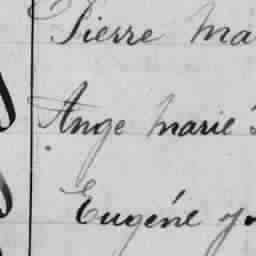 Pierre Ma
Ange Marie
Eugéne